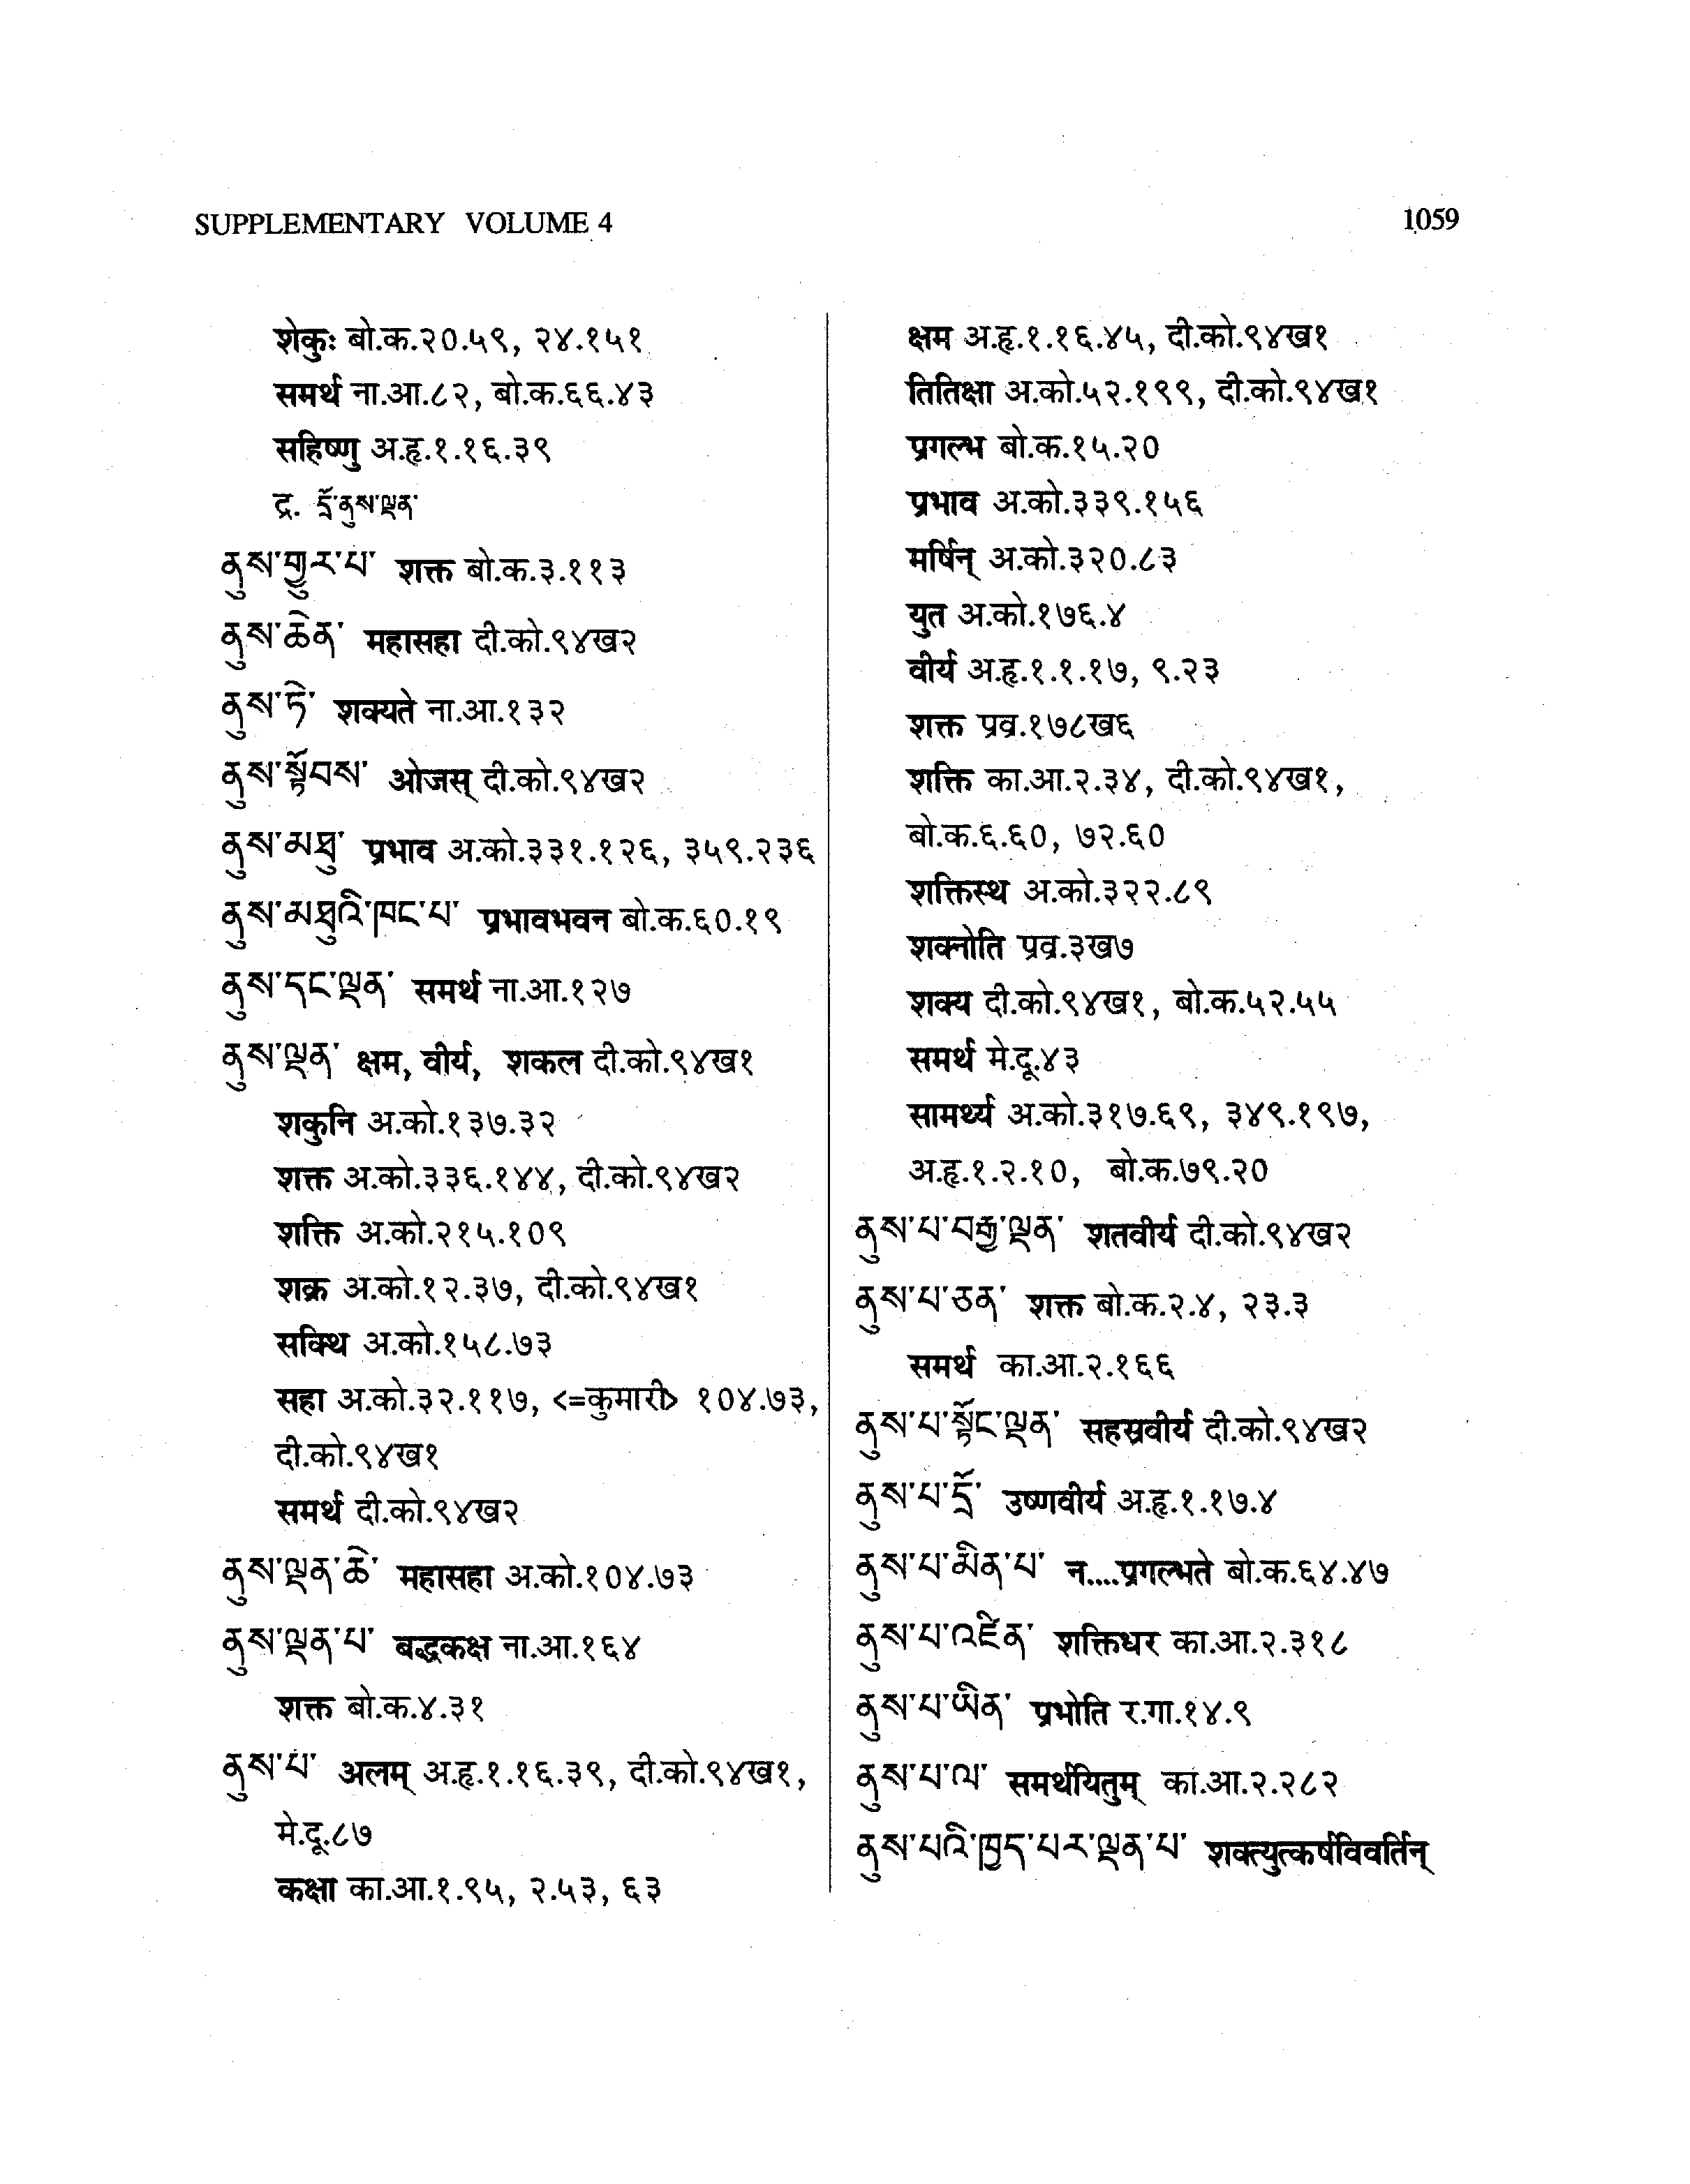 SUPPLEMENTARY VOLUME 4
1059
शेकुः बो.क.२०.५९, २४.१५१
समर्थ ना.आ.८२, बो.क.६६.४३
सहिष्णु अ.हृ.१.१६.३९
द्र. དྲོ་ནུས་ལྡན་
ནུས་གྱུར་པ་ शक्त बो.क.३.११३
ནུས་ཆེན་ महासहा दी.को.९४ख२
ནུས་ཏེ་ शक्यते ना.आ.१३२
ནུས་སྟོབས་ ओजस् दी.को.९४ख२
ནུས་མཐུ་ प्रभाव अ.को.३३१.१२६, ३५९.२३६
ནུས་མཐུའི་ཁང་པ་ प्रभावभवन बो.क.६०.१९
ནུས་དང་ལྡན་ समर्थ ना.आ.१२७
ནུས་ལྡན་ क्षम, वीर्य, शकल दी.को.९४ख१
शकुनि अ.को.१३७.३२
शक्त अ.को.३३६.१४४, दी.को.९४ख२
शक्ति अ.को.२१५.१०९
शक्र अ.को.१२.३७, दी.को.९४ख१
सक्थि अ.को.१५८.७३
सहा अ.को.३२.११७, <=कुमारी> १०४.७३,
दी.को.९४ख१
समर्थ दी.को.९४ख२
ནུས་ལྡན་ཆེ་ महासहा अ.को.१०४.७३
ནུས་ལྡན་པ་ बद्धकक्ष ना.आ.१६४
शक्त बो.क.४.३१
ནུས་པ་ अलम् अ.हृ.१.१६.३९, दी.को.९४ख१,
मे.दू.८७
कक्षा का.आ.१.९५, २.५३, ६३
क्षम अ.हृ.१.१६.४५, दी.को.९४ख१
तितिक्षा अ.को.५२.१९९, दी.को.९४ख१
प्रगल्भ बो.क.१५.२०
प्रभाव अ.को.३३९.१५६
मर्षिन् अ.को.३२०.८३
युत अ.को.१७६.४
वीर्य अ.हृ.१.१.१७, ९.२३
शक्त प्रव्र.१७८ख६
शक्ति का.आ.२.३४, दी.को.९४ख१,
बो.क.६.६०, ७२.६०
शक्तिस्थ अ.को.३२२.८९
शक्नोति प्रव्र.३ख७
शक्य दी.को.९४ख१, बो.क.५२.५५
समर्थ मे.दू.४३
सामर्थ्य अ.को.३१७.६९, ३४९.१९७,
अ.हृ.१.२.१०, बो.क.७९.२०
ནུས་པ་བརྒྱ་ལྡན་ शतवीर्य दी.को.९४ख२
ནུས་པ་ཅན་ शक्त बो.क.२.४, २३.३
समर्थ का.आ.२.१६६
ནུས་པ་སྟོང་ལྡན་ सहस्रवीर्य दी.को.९४ख२
ནུས་པ་དྲོ་ उष्णवीर्य अ.हृ.१.१७.४
ནུས་པ་མིན་པ་ न....प्रगल्भते बो.क.६४.४७
ནུས་པ་འཛིན་ शक्तिधर का.आ.२.३१८
ནུས་པ་ཡིན་ प्रभोति र.गा.१४.९
ནུས་པ་ལ་ समर्थयितुम् का.आ.२.२८२
ནུས་པའི་ཁྱད་པར་ལྡན་པ་ शक्त्युत्कर्षविवर्तिन्